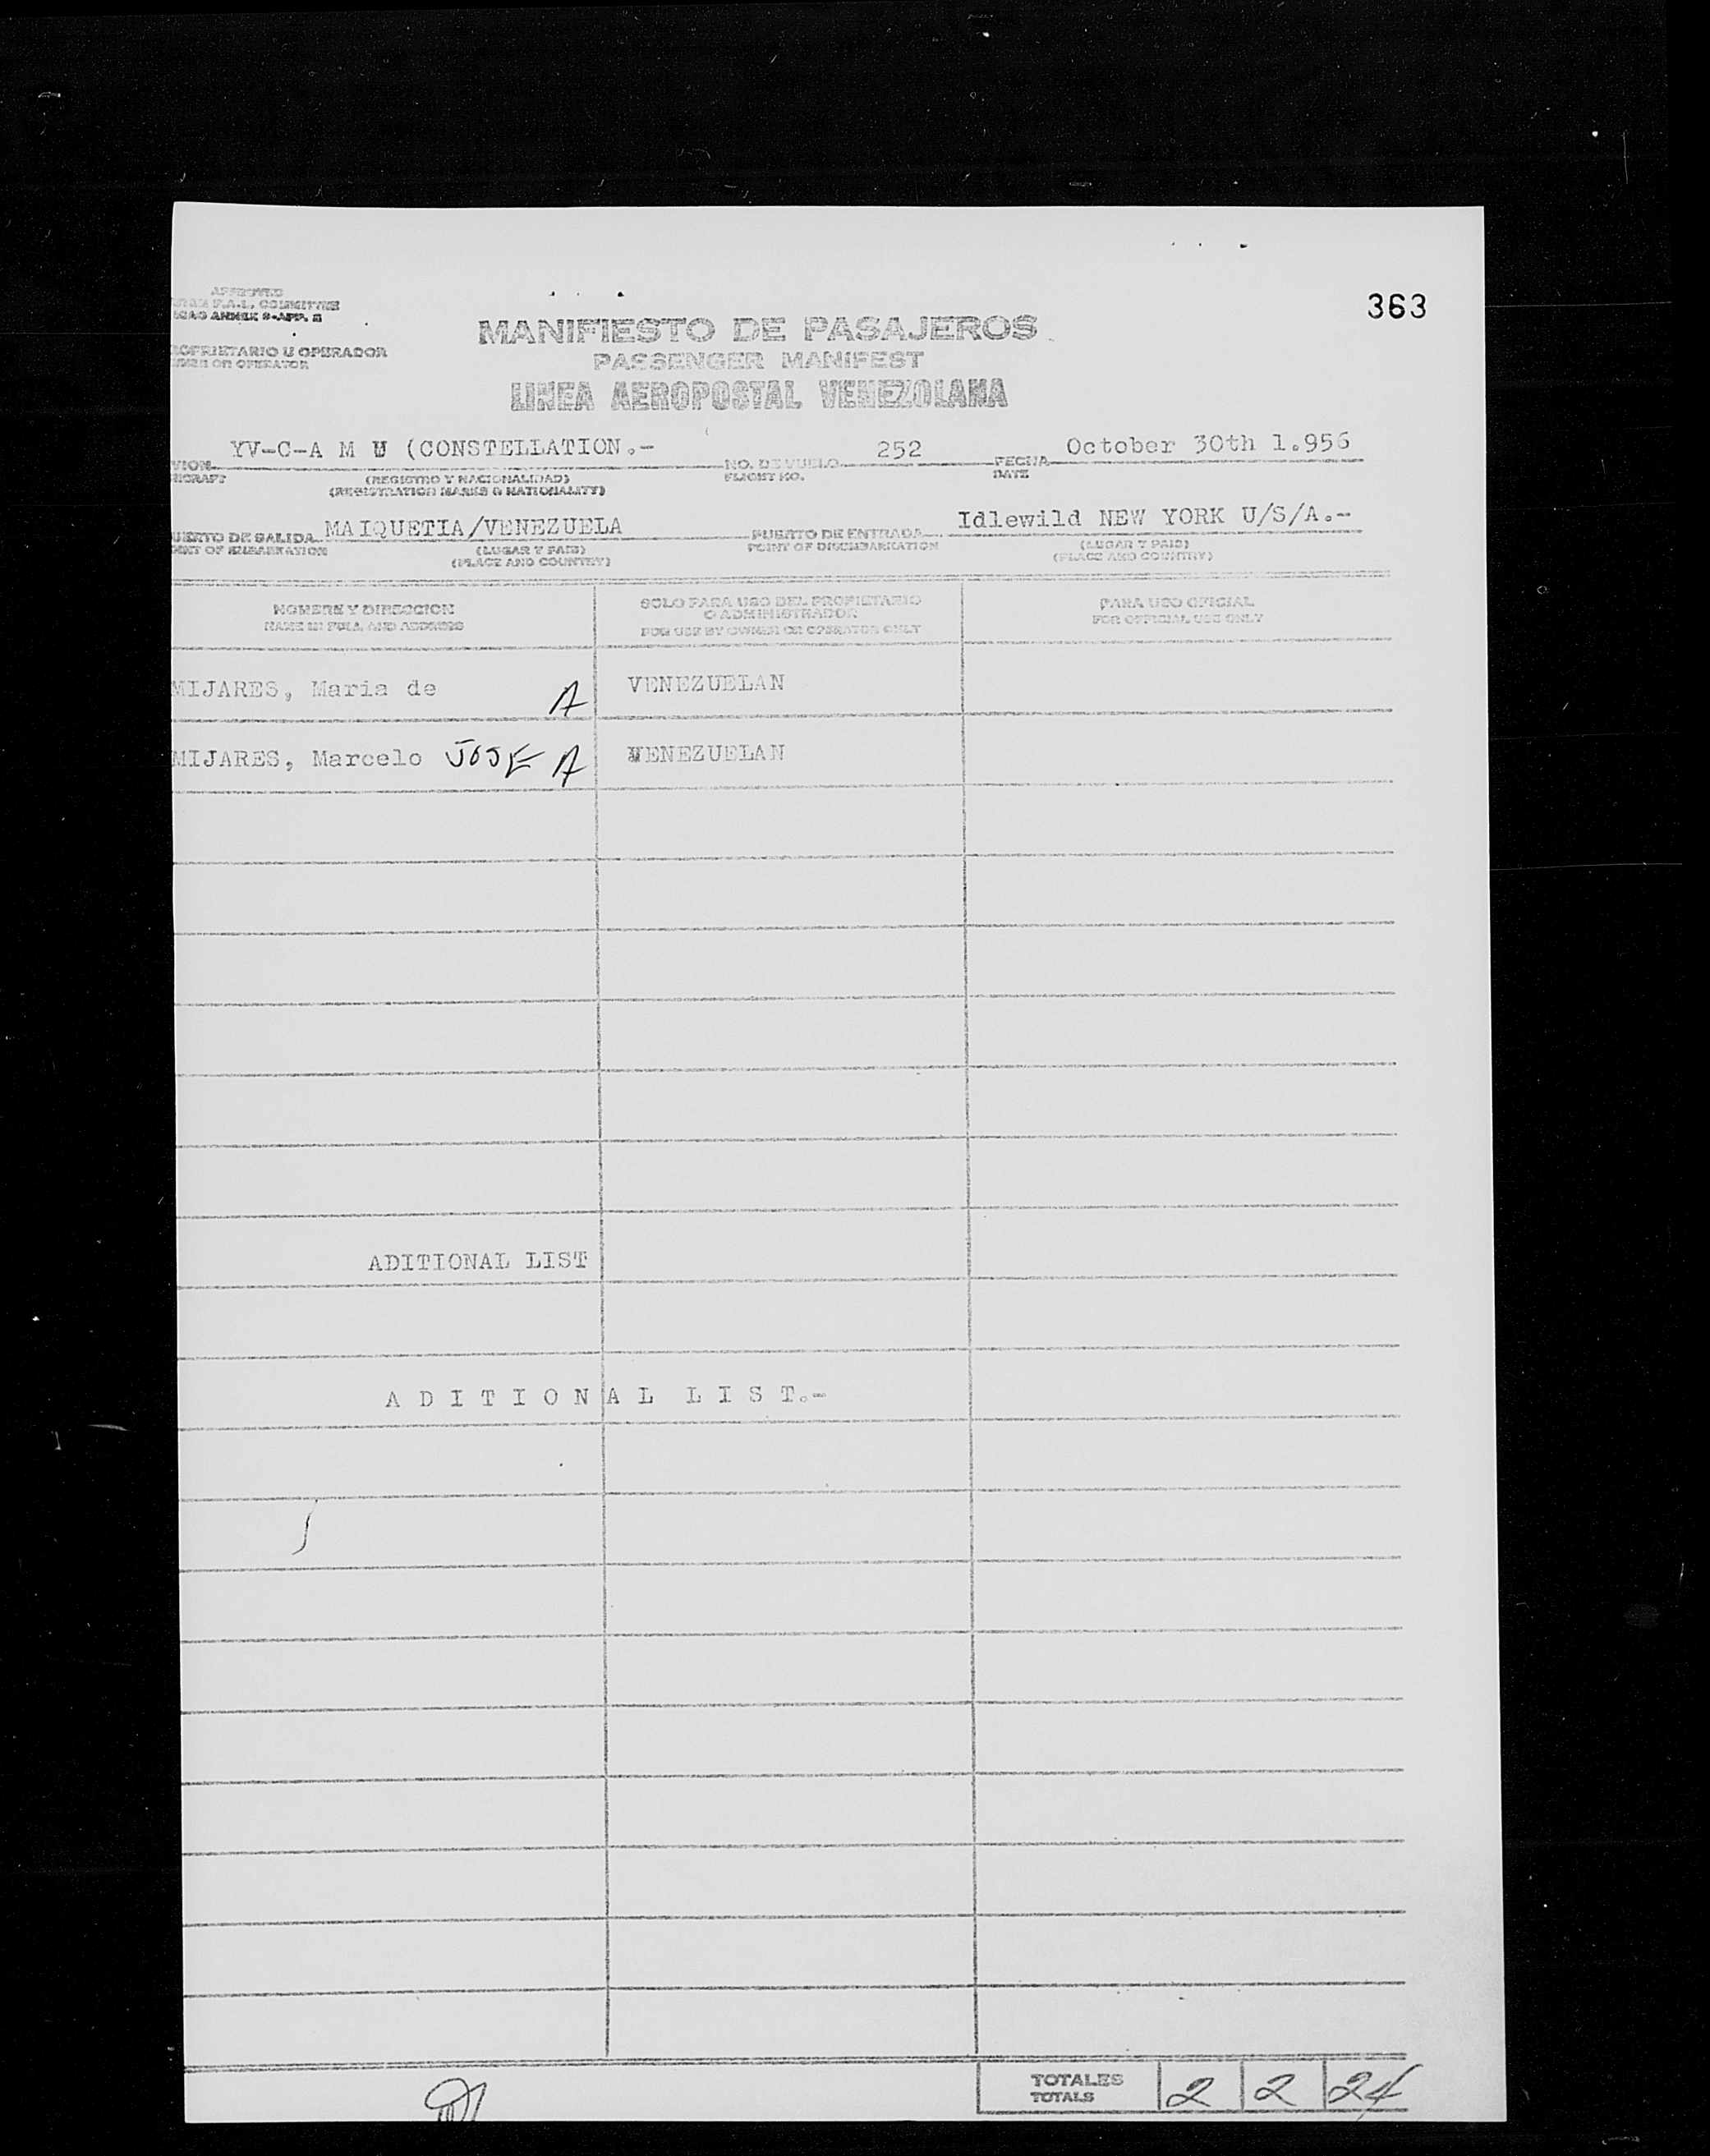 363
APPROVED
F.A.L. COMMITTEE
ICAO ANNEX 9-APP. 2
MANIFIESTO DE PASAJEROS
ROPRIETARIO U OPERADOR
OWNER OR OPERATOR
PASSENGER MANIFEST
LINEA AEROPOSTAL VENEZOLANA
VION YV-C-A M U (CONSTELLATION.- NO. DE VUELO 252 FECHA October 30th 1.956
IRCRAFT (REGISTRO Y NACIONALIDAD) FLIGHT NO. DATE
(REGISTRATION MARKS & NATIONALITY)
UERTO DE SALIDA MAIQUETIA/VENEZUELA PUERTO DE ENTRADA Idlewild NEW YORK U/S/A.-
OINT OF EMBARKATION (LUGAR Y PAIS) POINT OF DISEMBARKATION (LUGAR Y PAIS)
(PLACE AND COUNTRY) (PLACE AND COUNTRY)
NOMBRE Y DIRECCION SOLO PARA USO DEL PROPIETARIO PARA USO OFICIAL
O ADMINISTRADOR
NAME IN FULL AND ADDRESS FOR USE BY OWNER OR OPERATOR ONLY FOR OFFICIAL USE ONLY
MIJARES, Maria de A VENEZUELAN
MIJARES, Marcelo JOSE A VENEZUELAN
ADITIONAL LIST
A D I T I O N A L L I S T.-
TOTALES 2 2 24
TOTALS